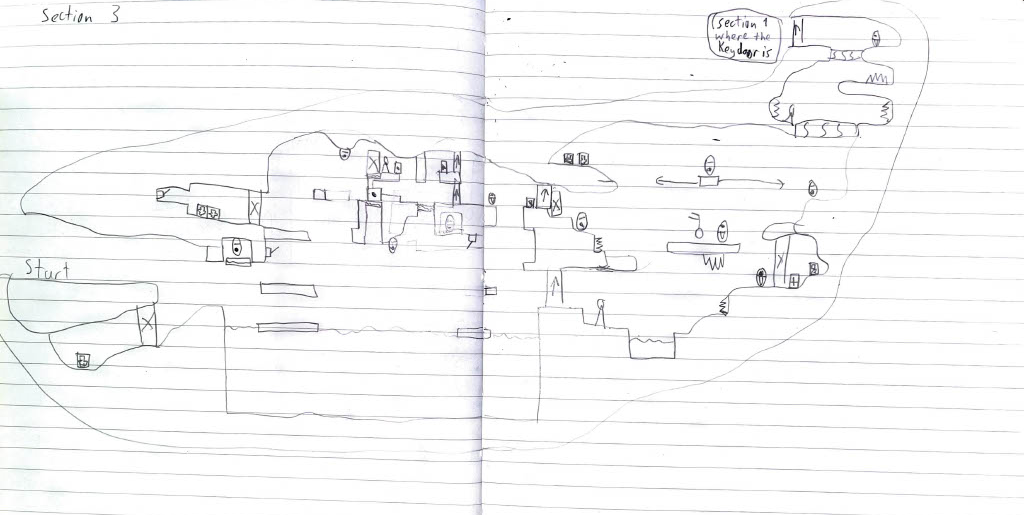 Section 3
(section 1
where the
Keydoor is
Start